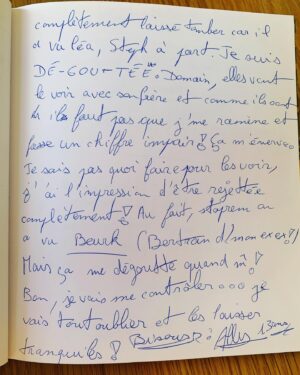 complètement laissé tomber car il
a vu léa, Steph à part. Je suis
DÉ-GOU-TÉE. Demain, elles vont
le voir avec son frère et comme ils sont
4 ils faut pas que j'me ramène et
fasse un chiffre impair! Ça m'énerve
Je sais pas quoi faire pour les voir,
j'ai l'impression d'être rejetée
complètement! Au fait, steph m
a vu Beurk (Bertran d'mon exes!)
Mais ça me dégoutte quand m̂!
Bon, je vais me controler... je
vais tout oublier et les laisser
tranquiles! Bisous